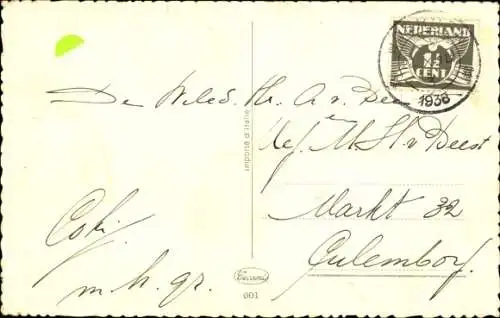 NEDERLAND
1½
CENT
1936
De Weled. Hr. A v. Dee
Mej. M. St. v Deest
Markt 32
Culemborg.
Coby.
m. h. gr.
importé d'Italie
601